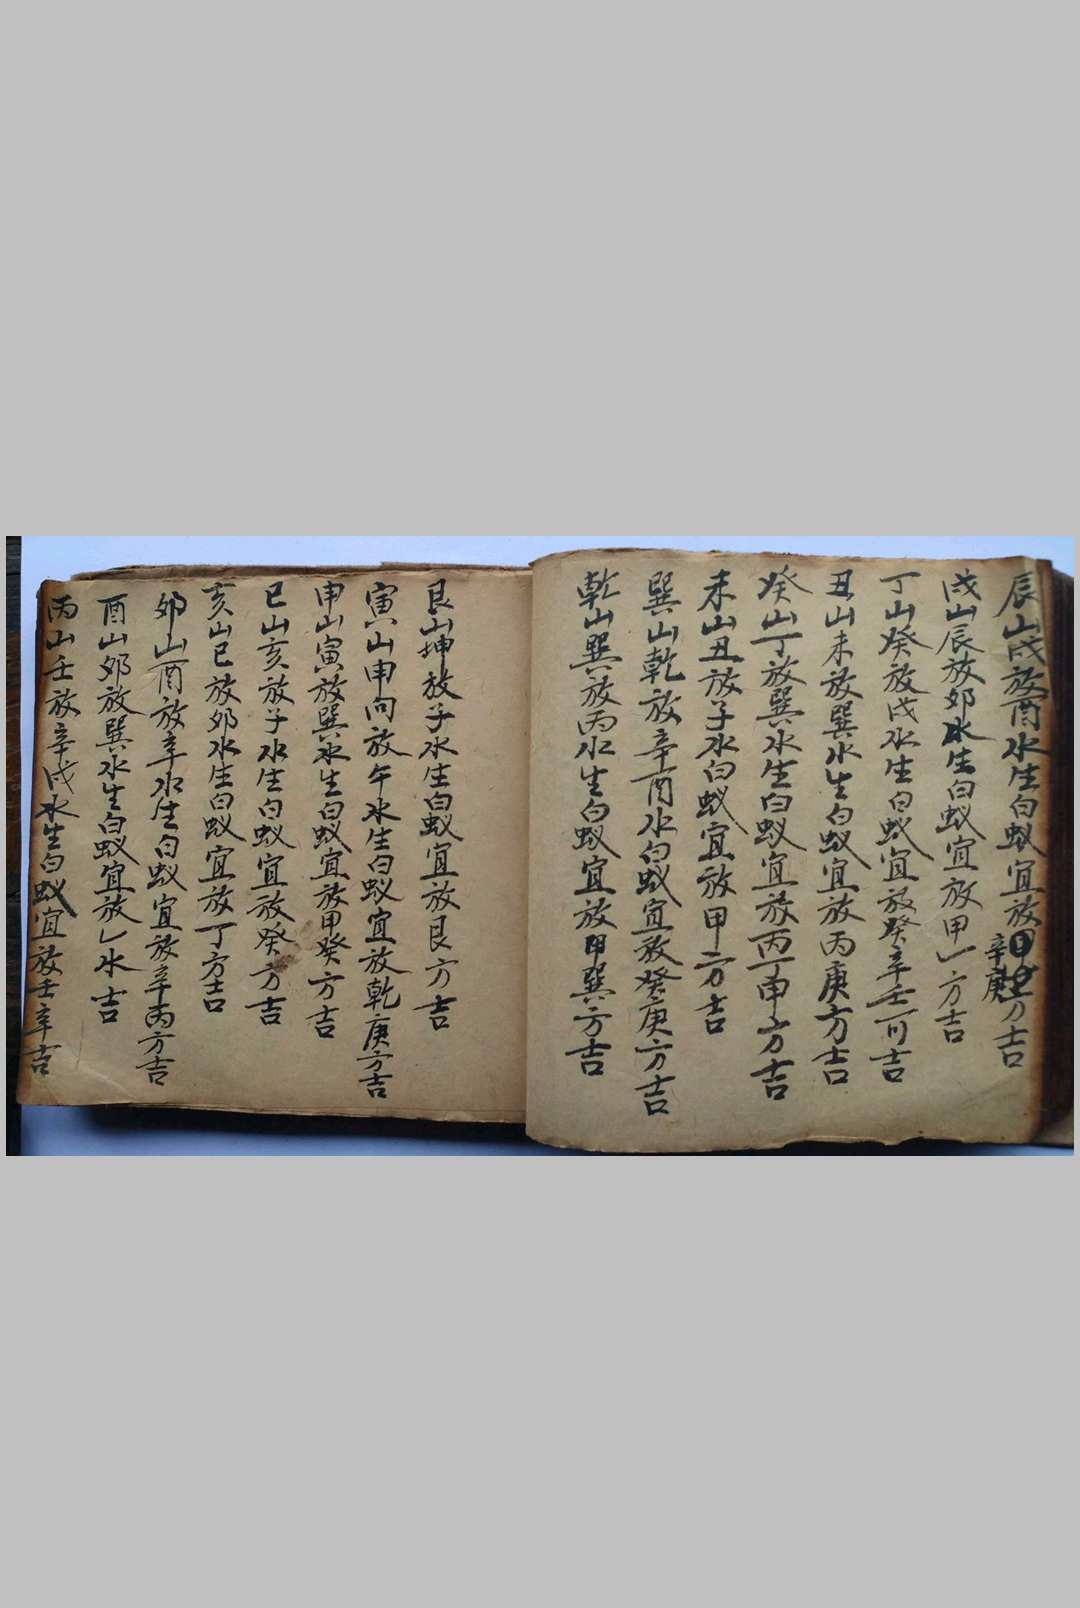 辰山戌放酉水生白蚁宜放辛庚方吉
戌山辰放卯水生白蚁宜放甲方吉
丁山癸放戌水生白蚁宜放癸辛壬可吉
丑山未放巽水生白蚁宜放丙庚方吉
癸山丁放巽水生白蚁宜放丙申方吉
未山丑放子水白蚁宜放甲方吉
巽山乾放辛酉水白蚁宜放癸庚方吉
乾山巽放丙水生白蚁宜放甲巽方吉
艮山坤放子水生白蚁宜放艮方吉
寅山申向放午水生白蚁宜放乾庚方吉
申山寅放巽水生白蚁宜放甲癸方吉
巳山亥放子水生白蚁宜放癸方吉
亥山巳放卯水生白蚁宜放丁方吉
卯山酉放辛水生白蚁宜放辛丙方吉
酉山卯放巽水生白蚁宜放乙水吉
丙山壬放辛戌水生白蚁宜放壬辛吉